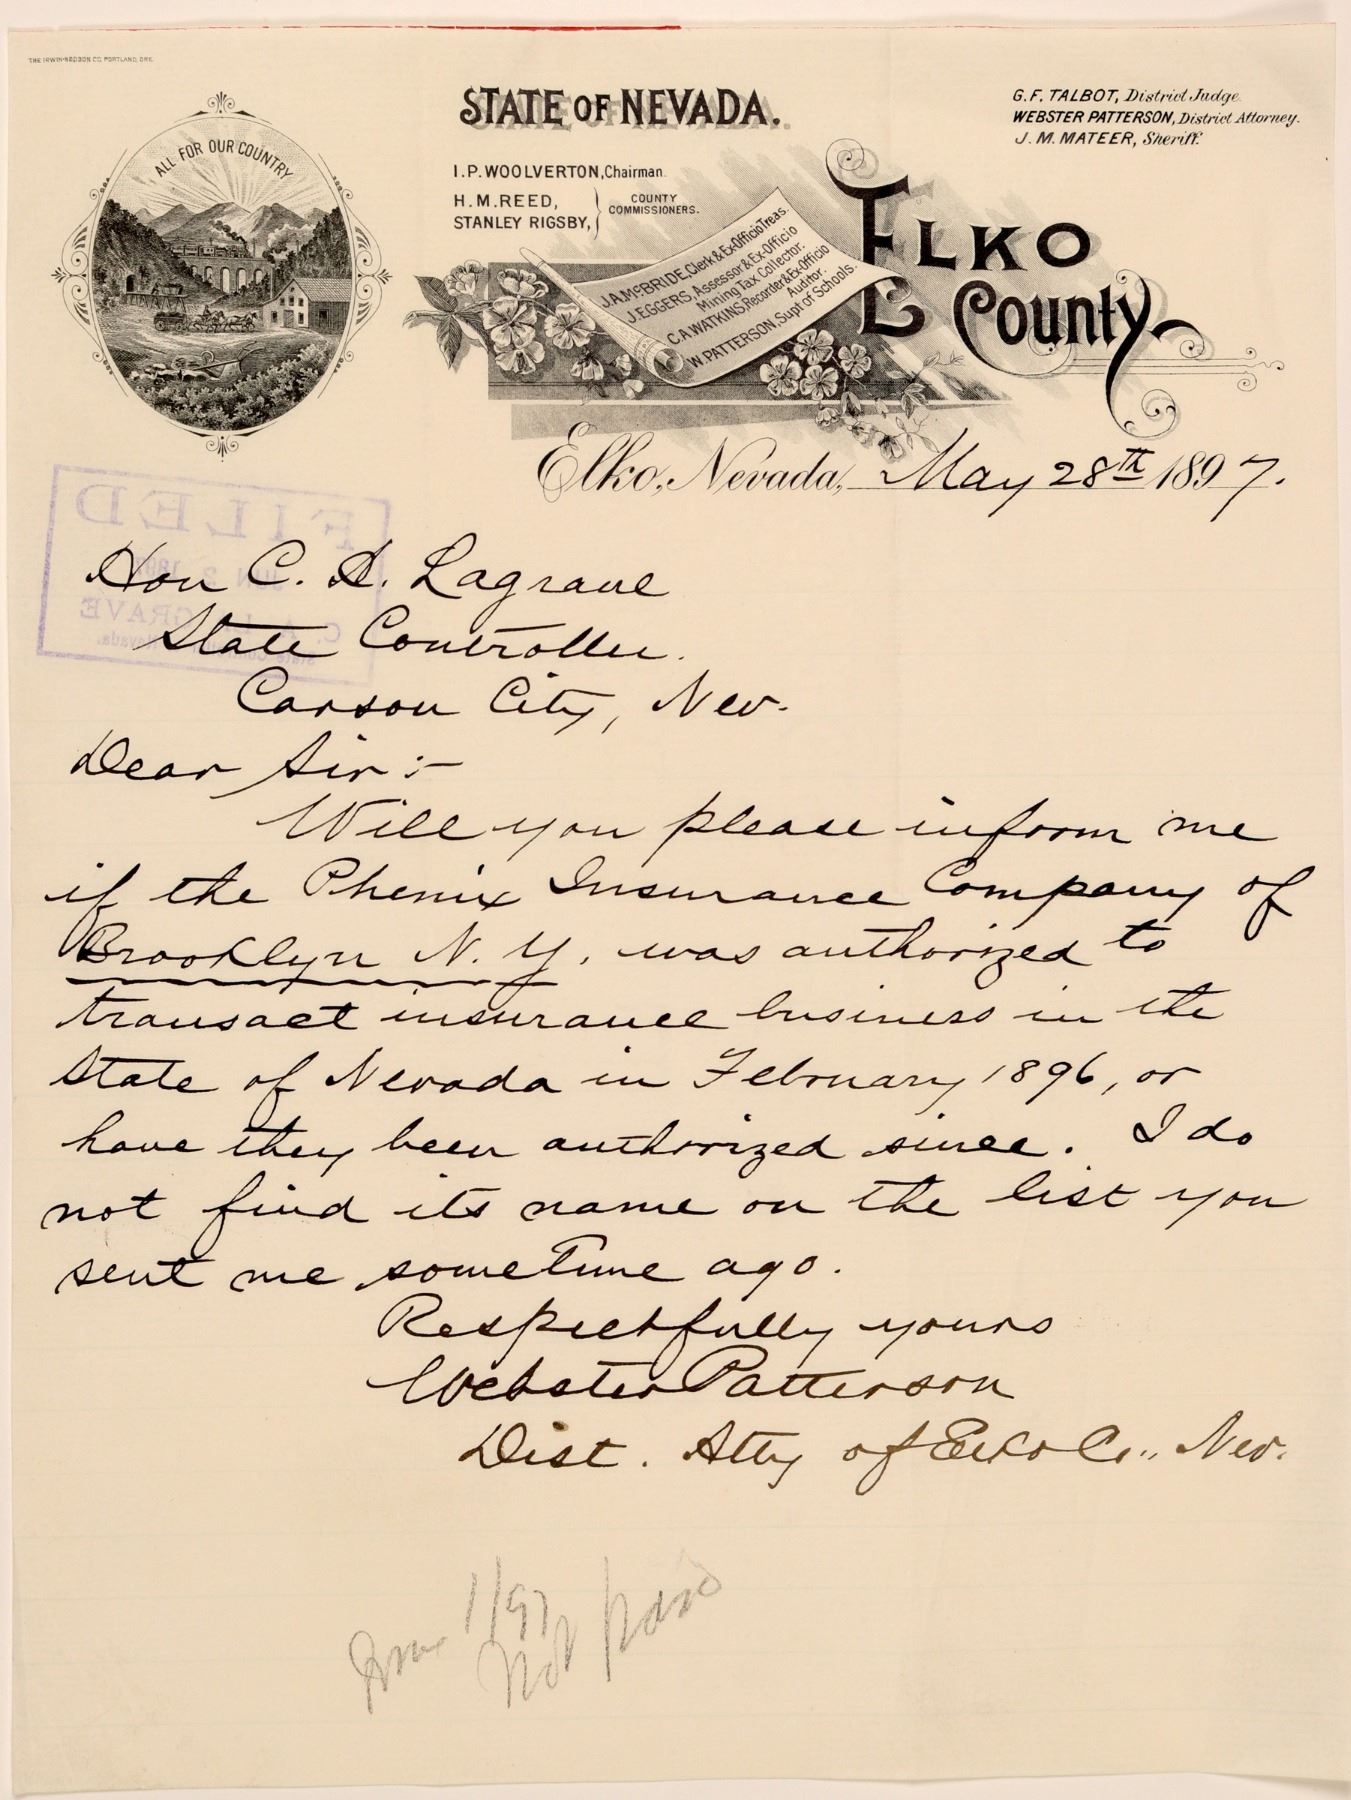 THE IRWIN-HODSON CO. PORTLAND, ORE.
ALL FOR OUR COUNTRY
STATE OF NEVADA.
G. F. TALBOT, District Judge.
WEBSTER PATTERSON, District Attorney.
J. M. MATEER, Sheriff.
I. P. WOOLVERTON, Chairman.
H. M. REED,
STANLEY RIGSBY,
COUNTY
COMMISSIONERS.
J. A. McBRIDE, Clerk & Ex-Officio Treas.
J. EGGERS, Assessor & Ex-Officio
Mining Tax Collector.
C. A. WATKINS, Recorder & Ex-Officio
Auditor.
W. PATTERSON, Supt of Schools.
ELKO
County
Elko, Nevada, May 28th 1897.
FILED
JUN 2 189
C. A. LAGRAVE
State Nevada.
Hon C. A. Lagrave
State Controller.
Carson City, Nev.
Dear Sir :-
Will you please inform me
if the Phenix Insurance Company of
Brooklyn N. Y. was authorized to
transact insurance business in the
State of Nevada in February 1896, or
have they been authorized since. I do
not find its name on the list you
sent me sometime ago.
Respectfully yours
Webster Patterson
Dist. Atty of Elko Co., Nev.
1/97
Not paid